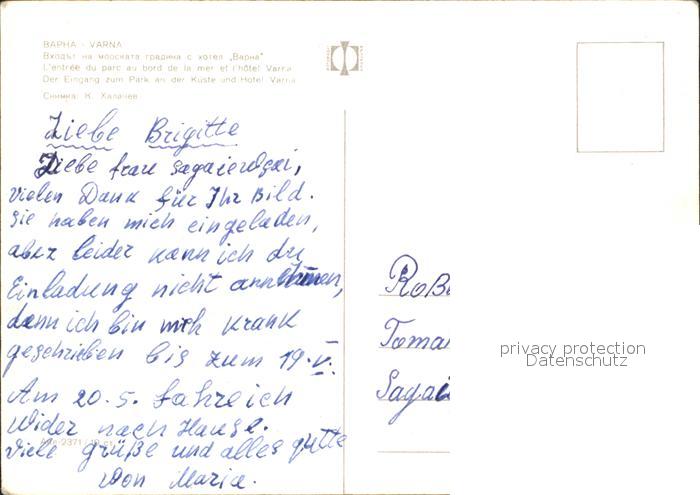 ВАРНА - VARNA
Входът на морската градина с хотел „Варна“
L'entrée du parc au bord de la mer et l'hôtel Varna
Der Eingang zum Park an der Küste und Hotel Varna
Снимка: К. Халачев
Liebe Brigitte
Liebe frau
vielen Dank für Ihr Bild.
Sie haben mich eingeladen,
aber leider kann ich die
Einladung nicht annehmen,
denn ich bin mich krank
geschrieben bis zum 19.V.
Am 20.5. fahre ich
Wider nach Hause.
Viele grüße und alles gutte
Von Maria.
Roß
Toma
Sagai
privacy protection
Datenschutz